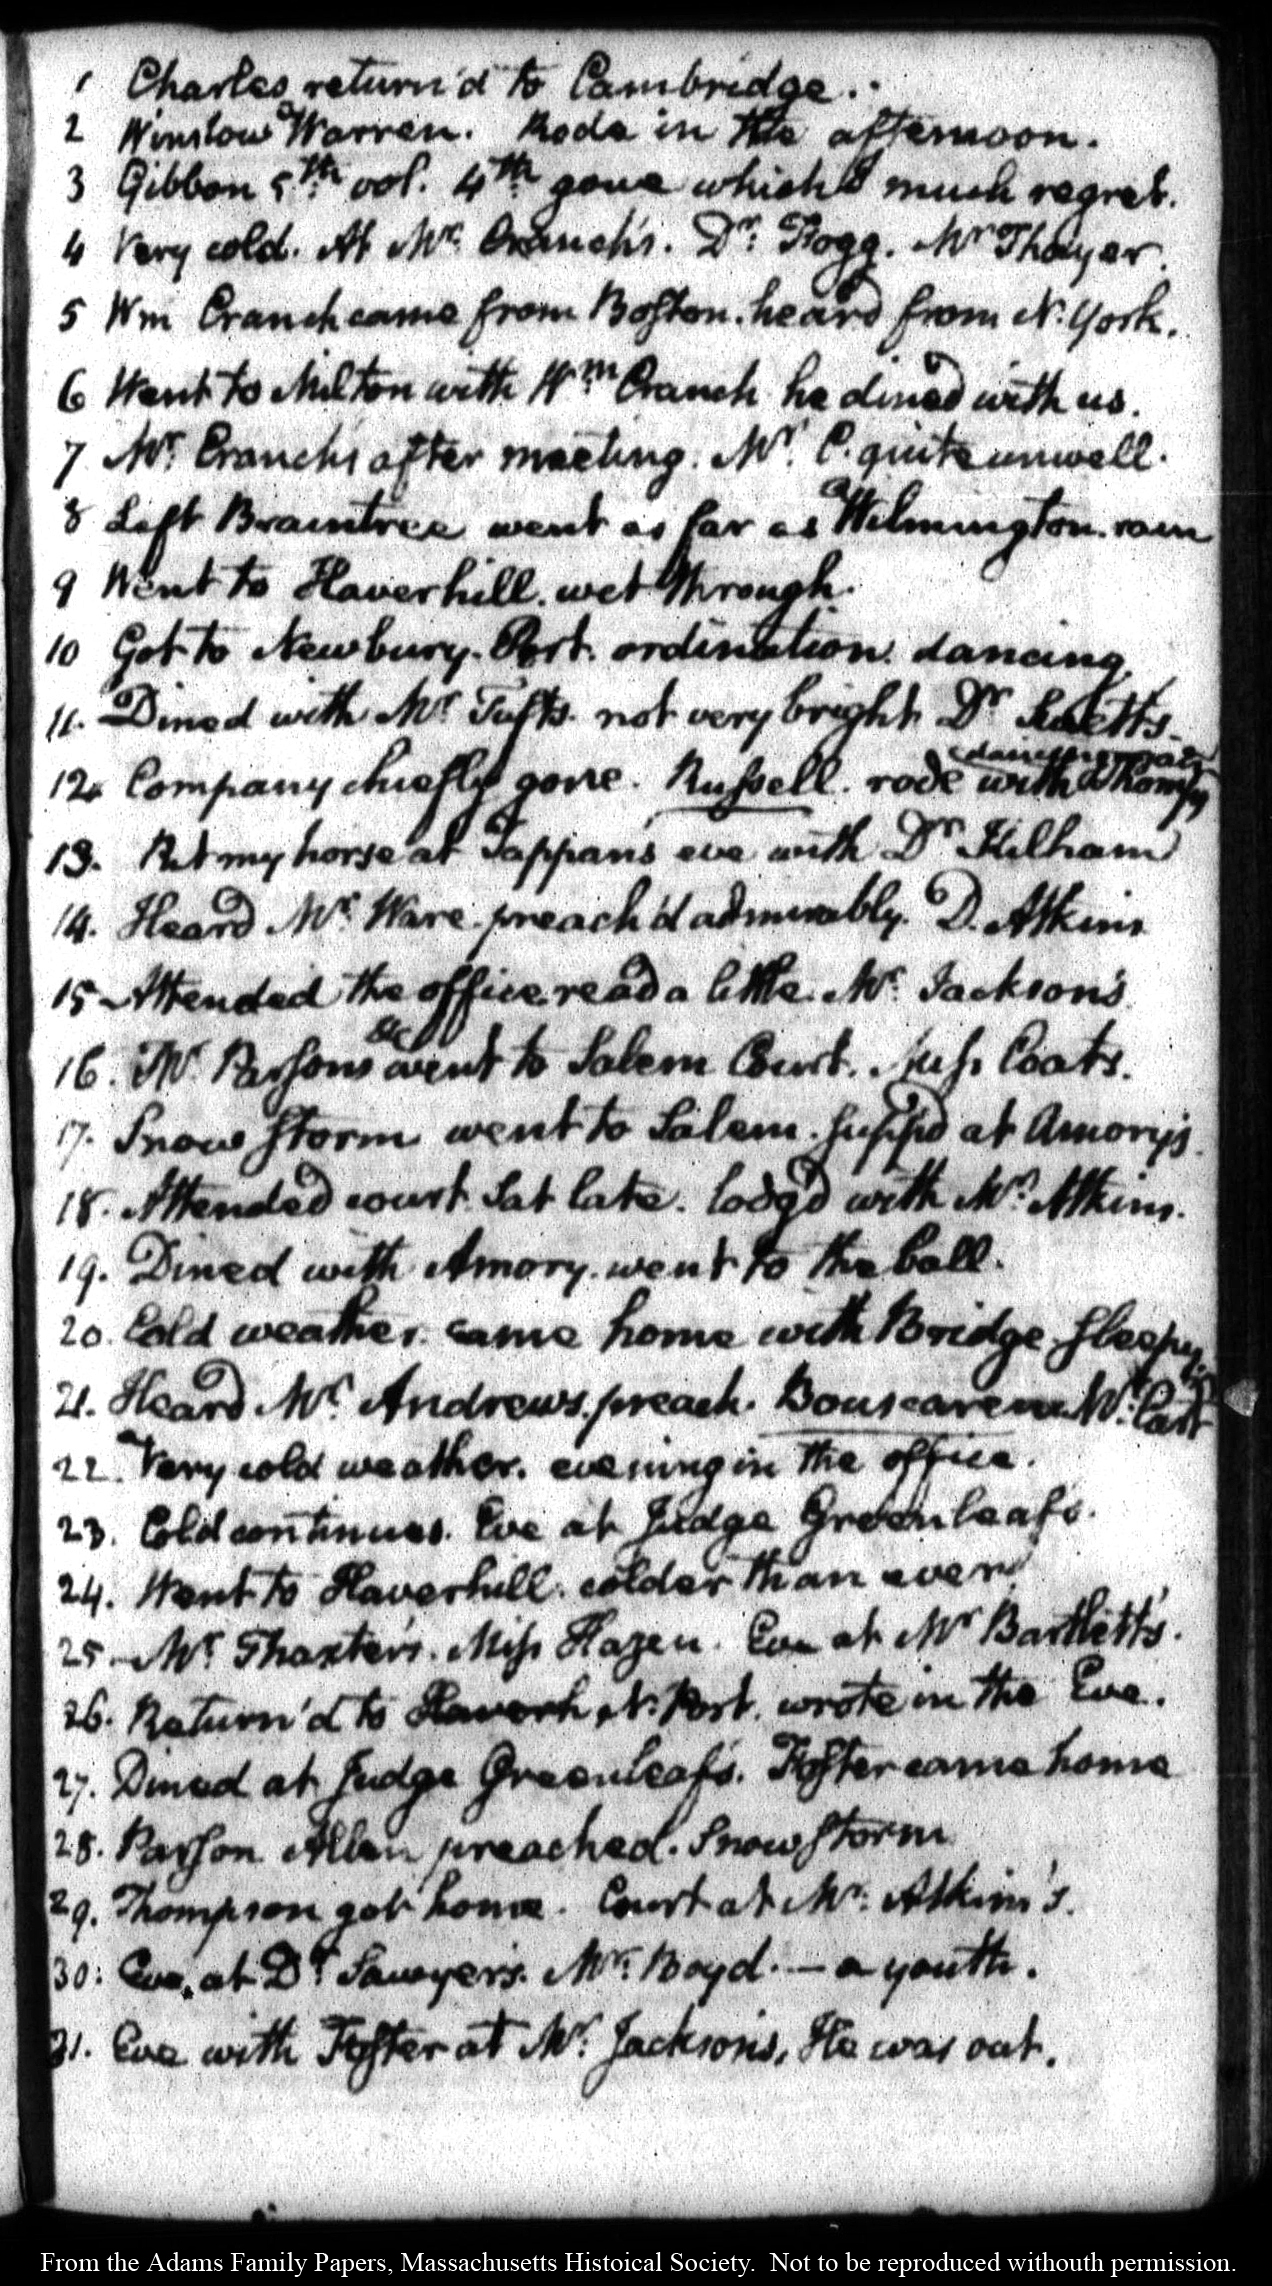 1 Charles return'd to Cambridge.
2 Winslow Warren. Rode in the afternoon.
3 Gibbon 5th vol. 4th gone which I much regret.
4 Very cold. At Mr. Cranch's. Dr. Fogg. Mr Thayer.
5 Wm Cranch came from Boston. heard from N. York.
6 Went to Milton with Wm Cranch he dined with us.
7 Mr. Cranch's after meeting. Mr. C. quite unwell.
8 Left Braintree went as far as Wilmington. rain
9 Went to Haverhill. wet through.
10 Got to Newbury-Port. ordination. dancing
11. Dined with Mr Tufts. not very bright Dr Swett's.
12. Company chiefly gone. Russell. rode with
13. Put my horse at Tappan's eve with Dr Kilham
14. Heard Mr. Ware. preach'd admirably. D. Atkins
15 Attended the office. read a little. Mr. Jackson's
16. Mr. Parsons &c went to Salem Court. Miss Coats.
17. Snow storm went to Salem. supp'd at Amory's.
18. Attended court. Sat late. lodg'd with Mrs. Atkins.
19. Dined with Amory. went to the ball.
20. Cold weather. came home with Bridge. sleepy.
21. Heard Mr. Andrews. preach. Bouscaren Mr. Carr
22. Very cold weather. evening in the office.
23. Cold continues. Eve at Judge Greenleafs.
24. Went to Haverhill. colder than ever
25 Mr. Thaxter's. Miss Hazen. Eve at Mr Bartlett's.
26. Return'd to Haverh N. Port. wrote in the Eve.
27. Dined at Judge Greenleaf's. Foster came home
28. Parson Allen preached. Snow storm
29. Thompson got home. Court at Mr. Atkins's.
30. Eve, at Dr. Sawyer's. Mr. Boyd. — a youth.
31. Eve with Foster at Mr. Jackson's, He was out.
From the Adams Family Papers, Massachusetts Histoical Society. Not to be reproduced withouth permission.